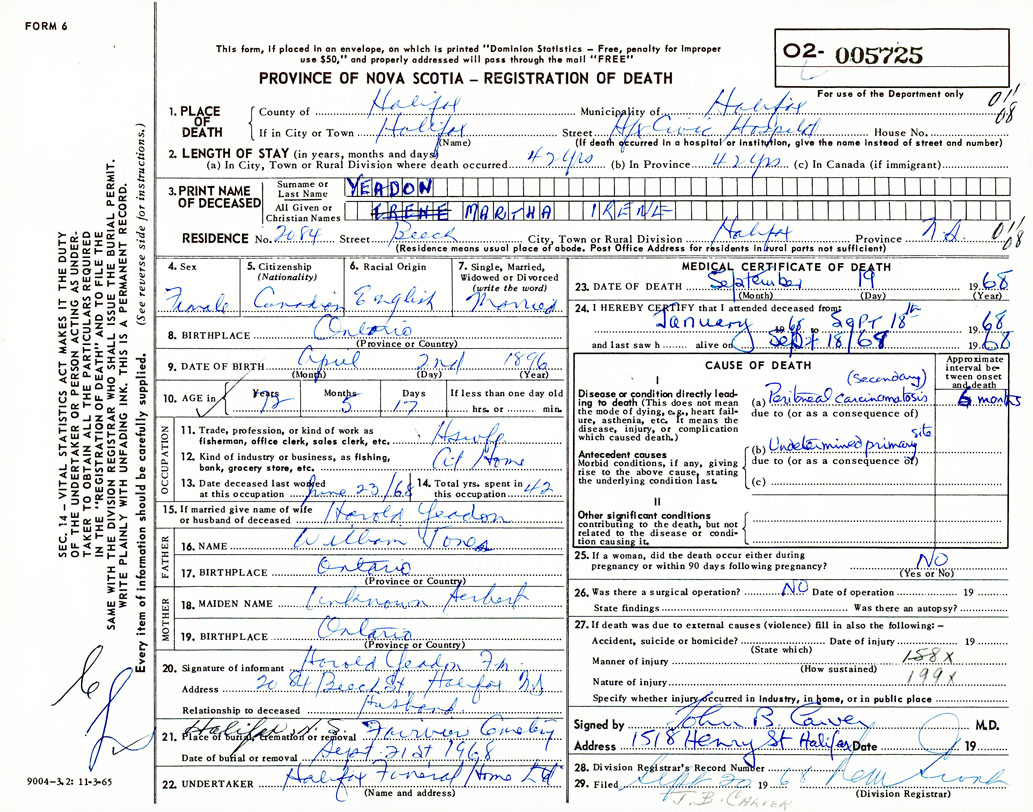 FORM 6
This form, if placed in an envelope, on which is printed "Dominion Statistics – Free, penalty for improper
use $50," and properly addressed will pass through the mail "FREE"
PROVINCE OF NOVA SCOTIA – REGISTRATION OF DEATH
O2- 005725
For use of the Department only
011
08
1. PLACE OF DEATH
County of Halifax Municipality of Halifax
If in City or Town Halifax Street Hfx Civic Hospital House No.
(Name) (If death occurred in a hospital or institution, give the name instead of street and number)
2. LENGTH OF STAY (in years, months and days)
(a) In City, Town or Rural Division where death occurred 42 yrs (b) In Province 42 yrs (c) In Canada (if immigrant)
3. PRINT NAME OF DECEASED
Surname or Last Name YEADON
All Given or Christian Names IRENE MARTHA IRENE
RESIDENCE No. 2084 Street Beech City, Town or Rural Division Halifax Province N.S. 011/08
(Residence means usual place of abode. Post Office Address for residents in rural parts not sufficient)
4. Sex Female
5. Citizenship (Nationality) Canadian
6. Racial Origin English
7. Single, Married, Widowed or Divorced (write the word) Married
8. BIRTHPLACE Ontario
(Province or Country)
9. DATE OF BIRTH April 2nd 1896
(Month) (Day) (Year)
10. AGE in Years 72 Months 5 Days 17 If less than one day old
hrs. or min.
OCCUPATION
11. Trade, profession or kind of work as
fisherman, office clerk, sales clerk, etc. Hswfe
12. Kind of industry or business, as fishing,
bank, grocery store, etc. At Home
13. Date deceased last worked
at this occupation June 23/68
14. Total yrs. spent in
this occupation 42
15. If married give name of wife
or husband of deceased Harold Yeadon
FATHER
16. NAME William Jones
17. BIRTHPLACE Ontario
(Province or Country)
MOTHER
18. MAIDEN NAME Unknown Herbert
19. BIRTHPLACE Ontario
(Province or Country)
20. Signature of informant Harold Yeadon
Address 2084 Beech St. Halifax N.S
Relationship to deceased Husband
21. Place of burial, cremation or removal Halifax N.S. Fairview Cemetery
Date of burial or removal Sept. 21st 1968
22. UNDERTAKER Halifax Funeral Home Ltd
(Name and address)
MEDICAL CERTIFICATE OF DEATH
23. DATE OF DEATH September 19 1968
(Month) (Day) (Year)
24. I HEREBY CERTIFY that I attended deceased from:
January 1968 to Sept 18th 1968
and last saw h alive on Sept 18/68 1968
CAUSE OF DEATH
Approximate interval between onset and death
I
Disease or condition directly leading to death (This does not mean the mode of dying, e.g., heart failure, asthenia, etc. It means the disease, injury, or complication which caused death.)
(secondary)
(a) Peritoneal Carcinomatosis 6 months
due to (or as a consequence of)
Antecedent causes
Morbid conditions, if any, giving rise to the above cause, stating the underlying condition last.
(b) Undetermined primary site
due to (or as a consequence of)
(c)
II
Other significant conditions
contributing to the death, but not related to the disease or condition causing it.
25. If a woman, did the death occur either during
pregnancy or within 90 days following pregnancy? NO
(Yes or No)
26. Was there a surgical operation? NO Date of operation 19
State findings Was there an autopsy?
27. If death was due to external causes (violence) fill in also the following: –
Accident, suicide or homicide? Date of injury 19
(State which)
Manner of injury 158X
(How sustained)
Nature of injury 199X
Specify whether injury occurred in industry, in home, or in public place
Signed by John B. Carver M.D.
Address 1518 Henry St Halifax Date 19
28. Division Registrar's Record Number
29. Filed Sept 20 1968
(Division Registrar)
J. B. CARVER
SEC. 14 – VITAL STATISTICS ACT MAKES IT THE DUTY
OF THE UNDERTAKER OR PERSON ACTING AS UNDER-
TAKER TO OBTAIN ALL THE PARTICULARS REQUIRED
IN THE "REGISTRATION OF DEATH" AND TO FILE THE
SAME WITH THE DIVISION REGISTRAR WHO SHALL ISSUE THE BURIAL PERMIT.
WRITE PLAINLY WITH UNFADING INK. THIS IS A PERMANENT RECORD.
Every item of information should be carefully supplied. (See reverse side for instructions.)
9004-3.2: 11-3-65